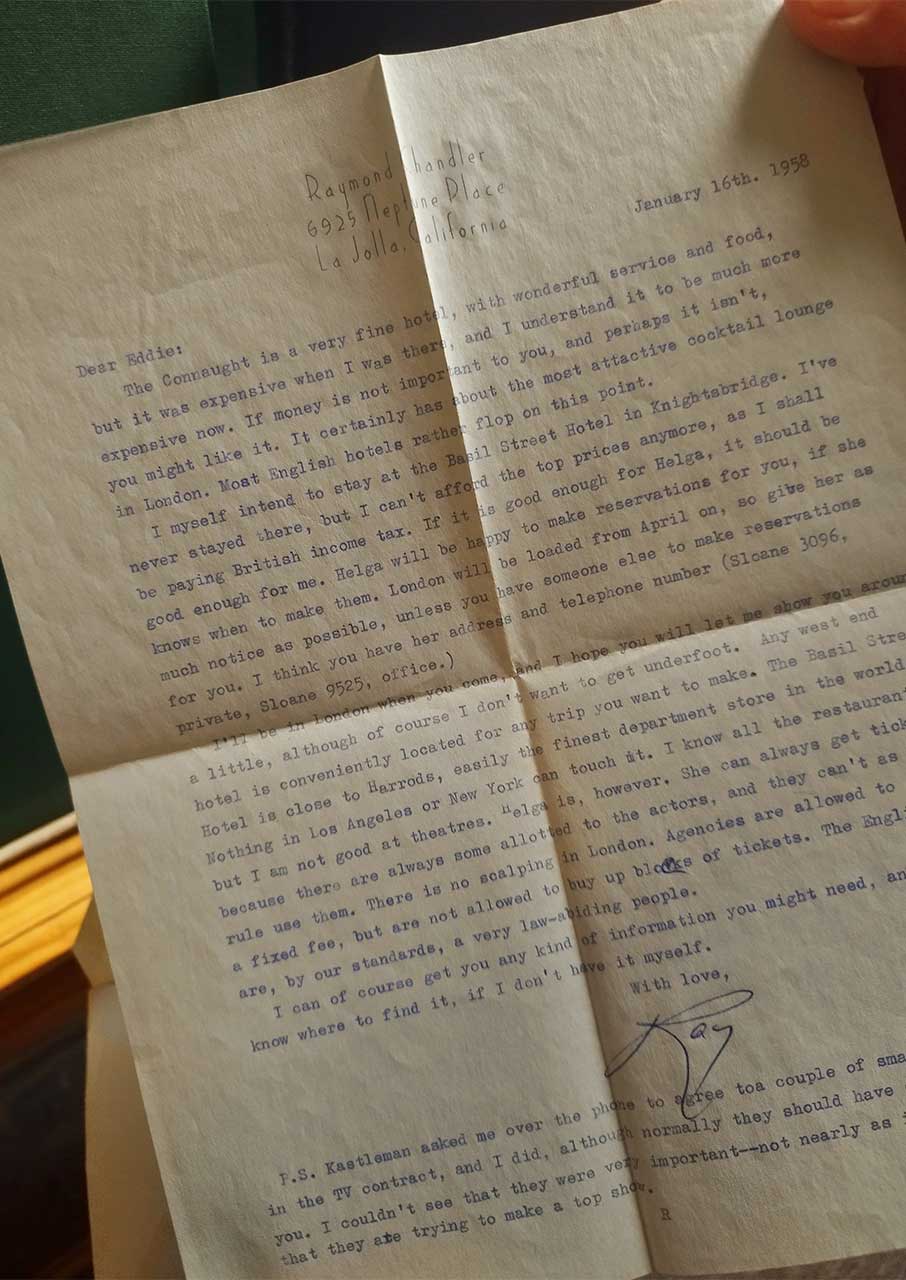 Raymond Chandler
6925 Neptune Place
La Jolla, California
January 16th. 1958
Dear Eddie:
The Connaught is a very fine hotel, with wonderful service and food,
but it was expensive when I was there, and I understand it to be much more
expensive now. If money is not important to you, and perhaps it isn't,
you might like it. It certainly has about the most attactive cocktail lounge
in London. Most English hotels rather flop on this point.
I myself intend to stay at the Basil Street Hotel in Knightsbridge. I've
never stayed there, but I can't afford the top prices anymore, as I shall
be paying British income tax. If it is good enough for Helga, it should be
good enough for me. Helga will be happy to make reservations for you, if she
knows when to make them. London will be loaded from April on, so give her as
much notice as possible, unless you have someone else to make reservations
for you. I think you have her address and telephone number (Sloane 3096,
private, Sloane 9525, office.)
I'll be in London when you come, and I hope you will let me show you aroun
a little, although of course I don't want to get underfoot. Any west end
hotel is conveniently located for any trip you want to make. The Basil Stre
Hotel is close to Harrods, easily the finest department store in the world
Nothing in Los Angeles or New York can touch it. I know all the restaurant
but I am not good at theatres. Helga is, however. She can always get tick
because there are always some allotted to the actors, and they can't as
rule use them. There is no scalping in London. Agencies are allowed to
a fixed fee, but are not allowed to buy up blocks of tickets. The Engli
are, by our standards, a very law-abiding people.
I can of course get you any kind of information you might need, an
know where to find it, if I don't have it myself.
With love,
Ray
P.S. Kastleman asked me over the phone to agree toa couple of sma
in the TV contract, and I did, although normally they should have
you. I couldn't see that they were very important--not nearly as i
that they are trying to make a top show.
R